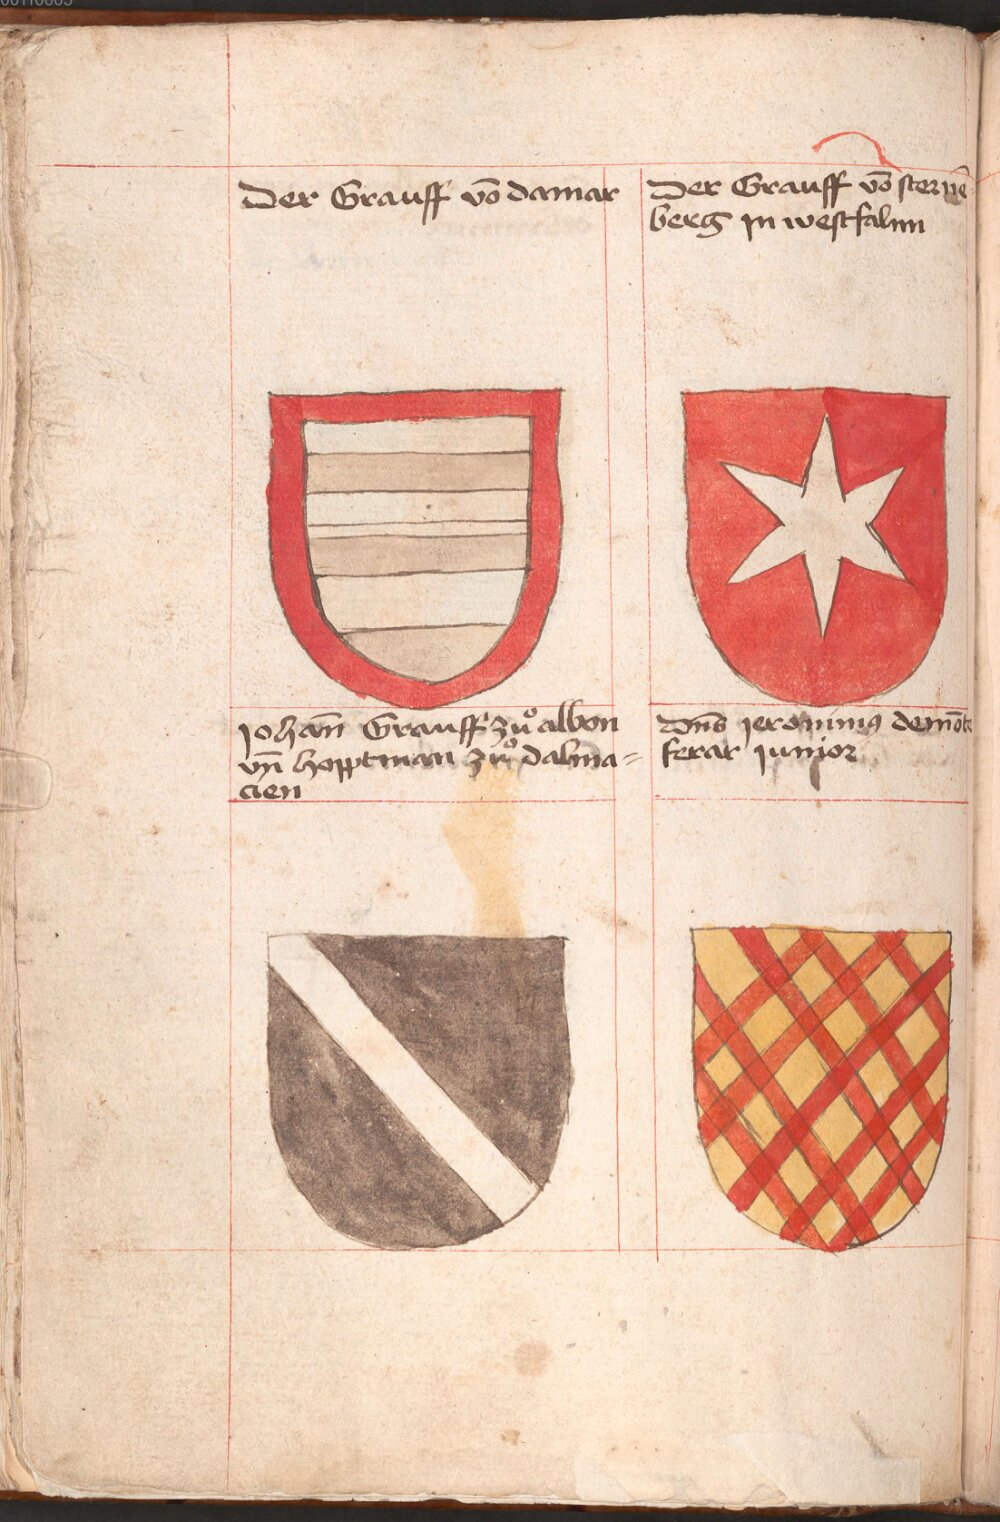 Der Grauff vō damar
Der Grauff vō sternē
berg in westfalnn
Johañ Grauff zuͦ albon
vn̄ hopptman zuͦ dalma=
cien
Dns̄ ieronimꝯ de mōte
ferar iunior